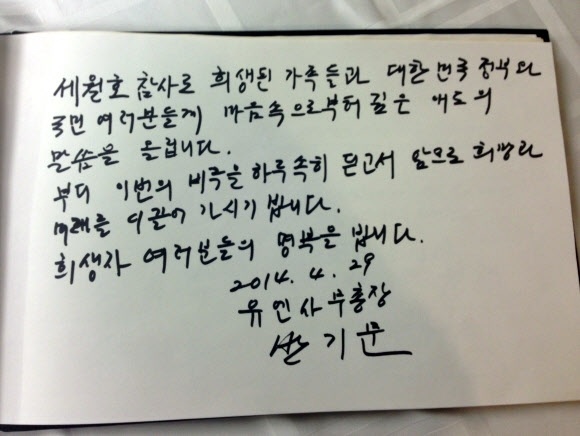 세월호 참사로 희생된 가족들과 대한민국 정부와
국민 여러분들께 마음속으로부터 깊은 애도의
말씀을 올립니다.
부디 이번의 비극을 하루속히 딛고서 앞으로 희망과
미래를 이끌어 가시기 빕니다.
희생자 여러분들의 명복을 빕니다.
2014. 4. 29
유엔사무총장
반기문